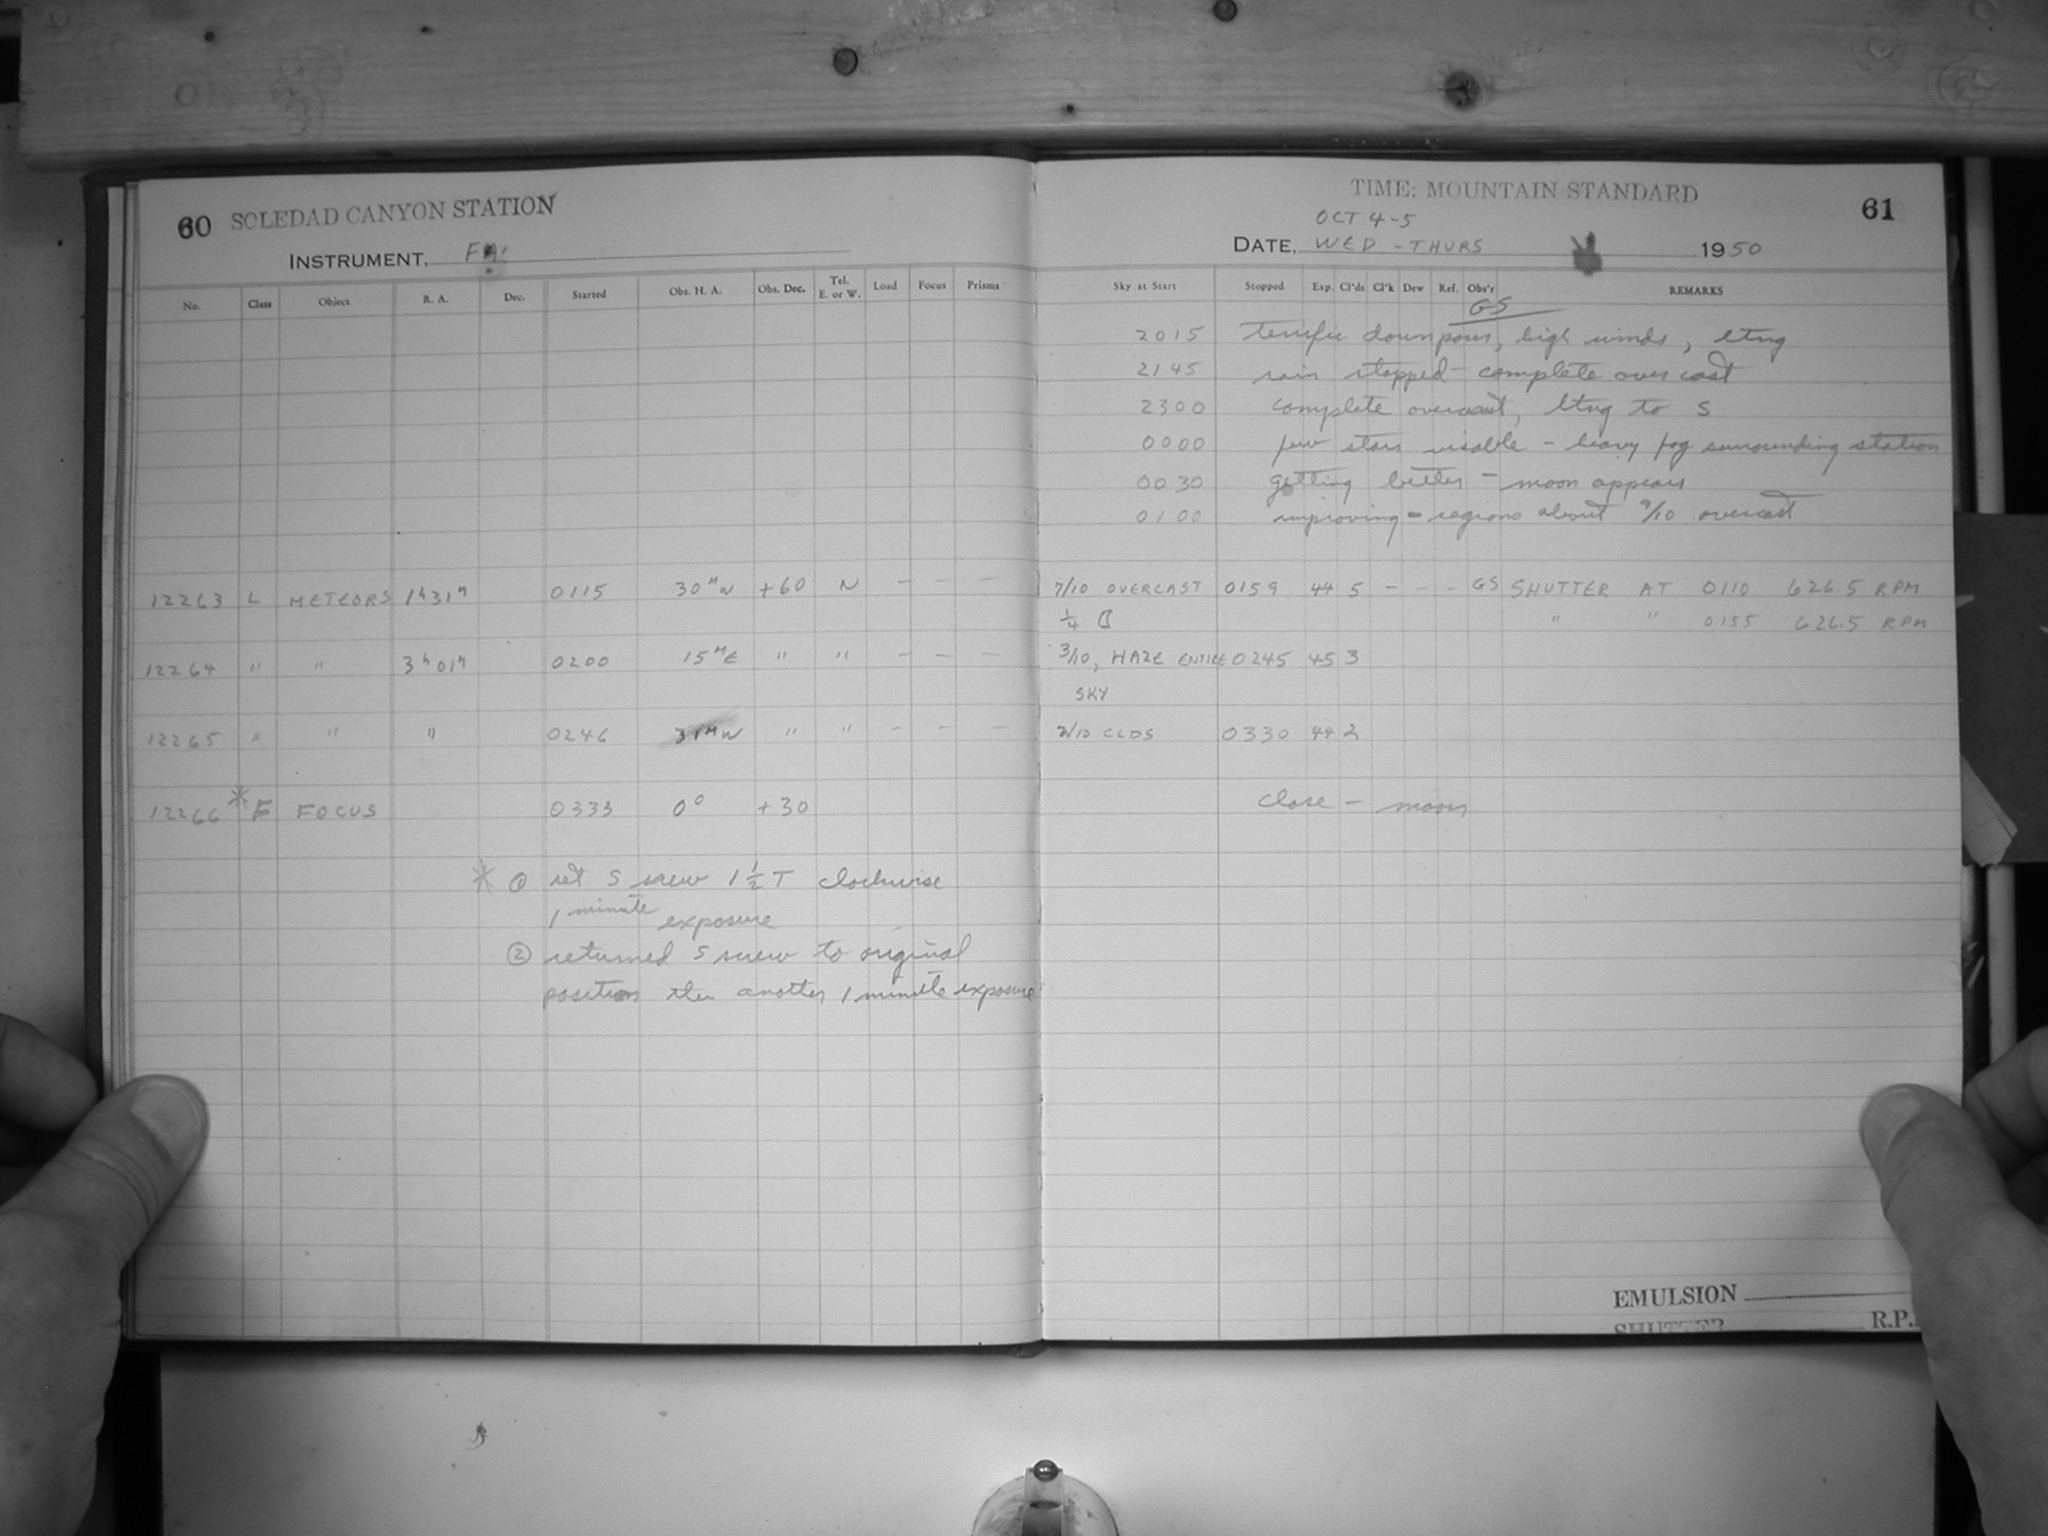 60 SOLEDAD CANYON STATION
INSTRUMENT,
No. Class Object R. A. Dec. Started Obs. H. A. Obs. Dec. Tel. E. or W. Load Focus Prisms
12263 L METEORS 1h31m 0115 30MW +60 N - - -
12264 " " 3h01m 0200 15ME " " - - -
12265 " " " 0246 31MW " " - - -
12266 * F FOCUS 0333 0° +30
* ① set S screw 1 1/2 T clockwise
1 minute exposure
② returned S screw to original
position then another 1 minute exposure
TIME: MOUNTAIN STANDARD
61
OCT 4-5
DATE, WED - THURS 1950
Sky at Start Stopped Exp. Cl'ds Cl'k Drw Ref. Obs'r REMARKS
GS
2015 terrific downpour, high winds, ltng
2145 rain stopped - complete overcast
2300 complete overcast, ltng to S
0000 few stars visable - heavy fog surrounding station
0030 getting better - moon appears
0100 improving - regions about 9/10 overcast
7/10 OVERCAST 0159 44 5 - - - GS SHUTTER AT 0110 626.5 RPM
1/4 " " 0155 626.5 RPM
3/10, HAZE ENTIRE 0245 45 3
SKY
2/10 CLDS 0330 44 2
Close - moon
EMULSION
SHUTTER R.P.